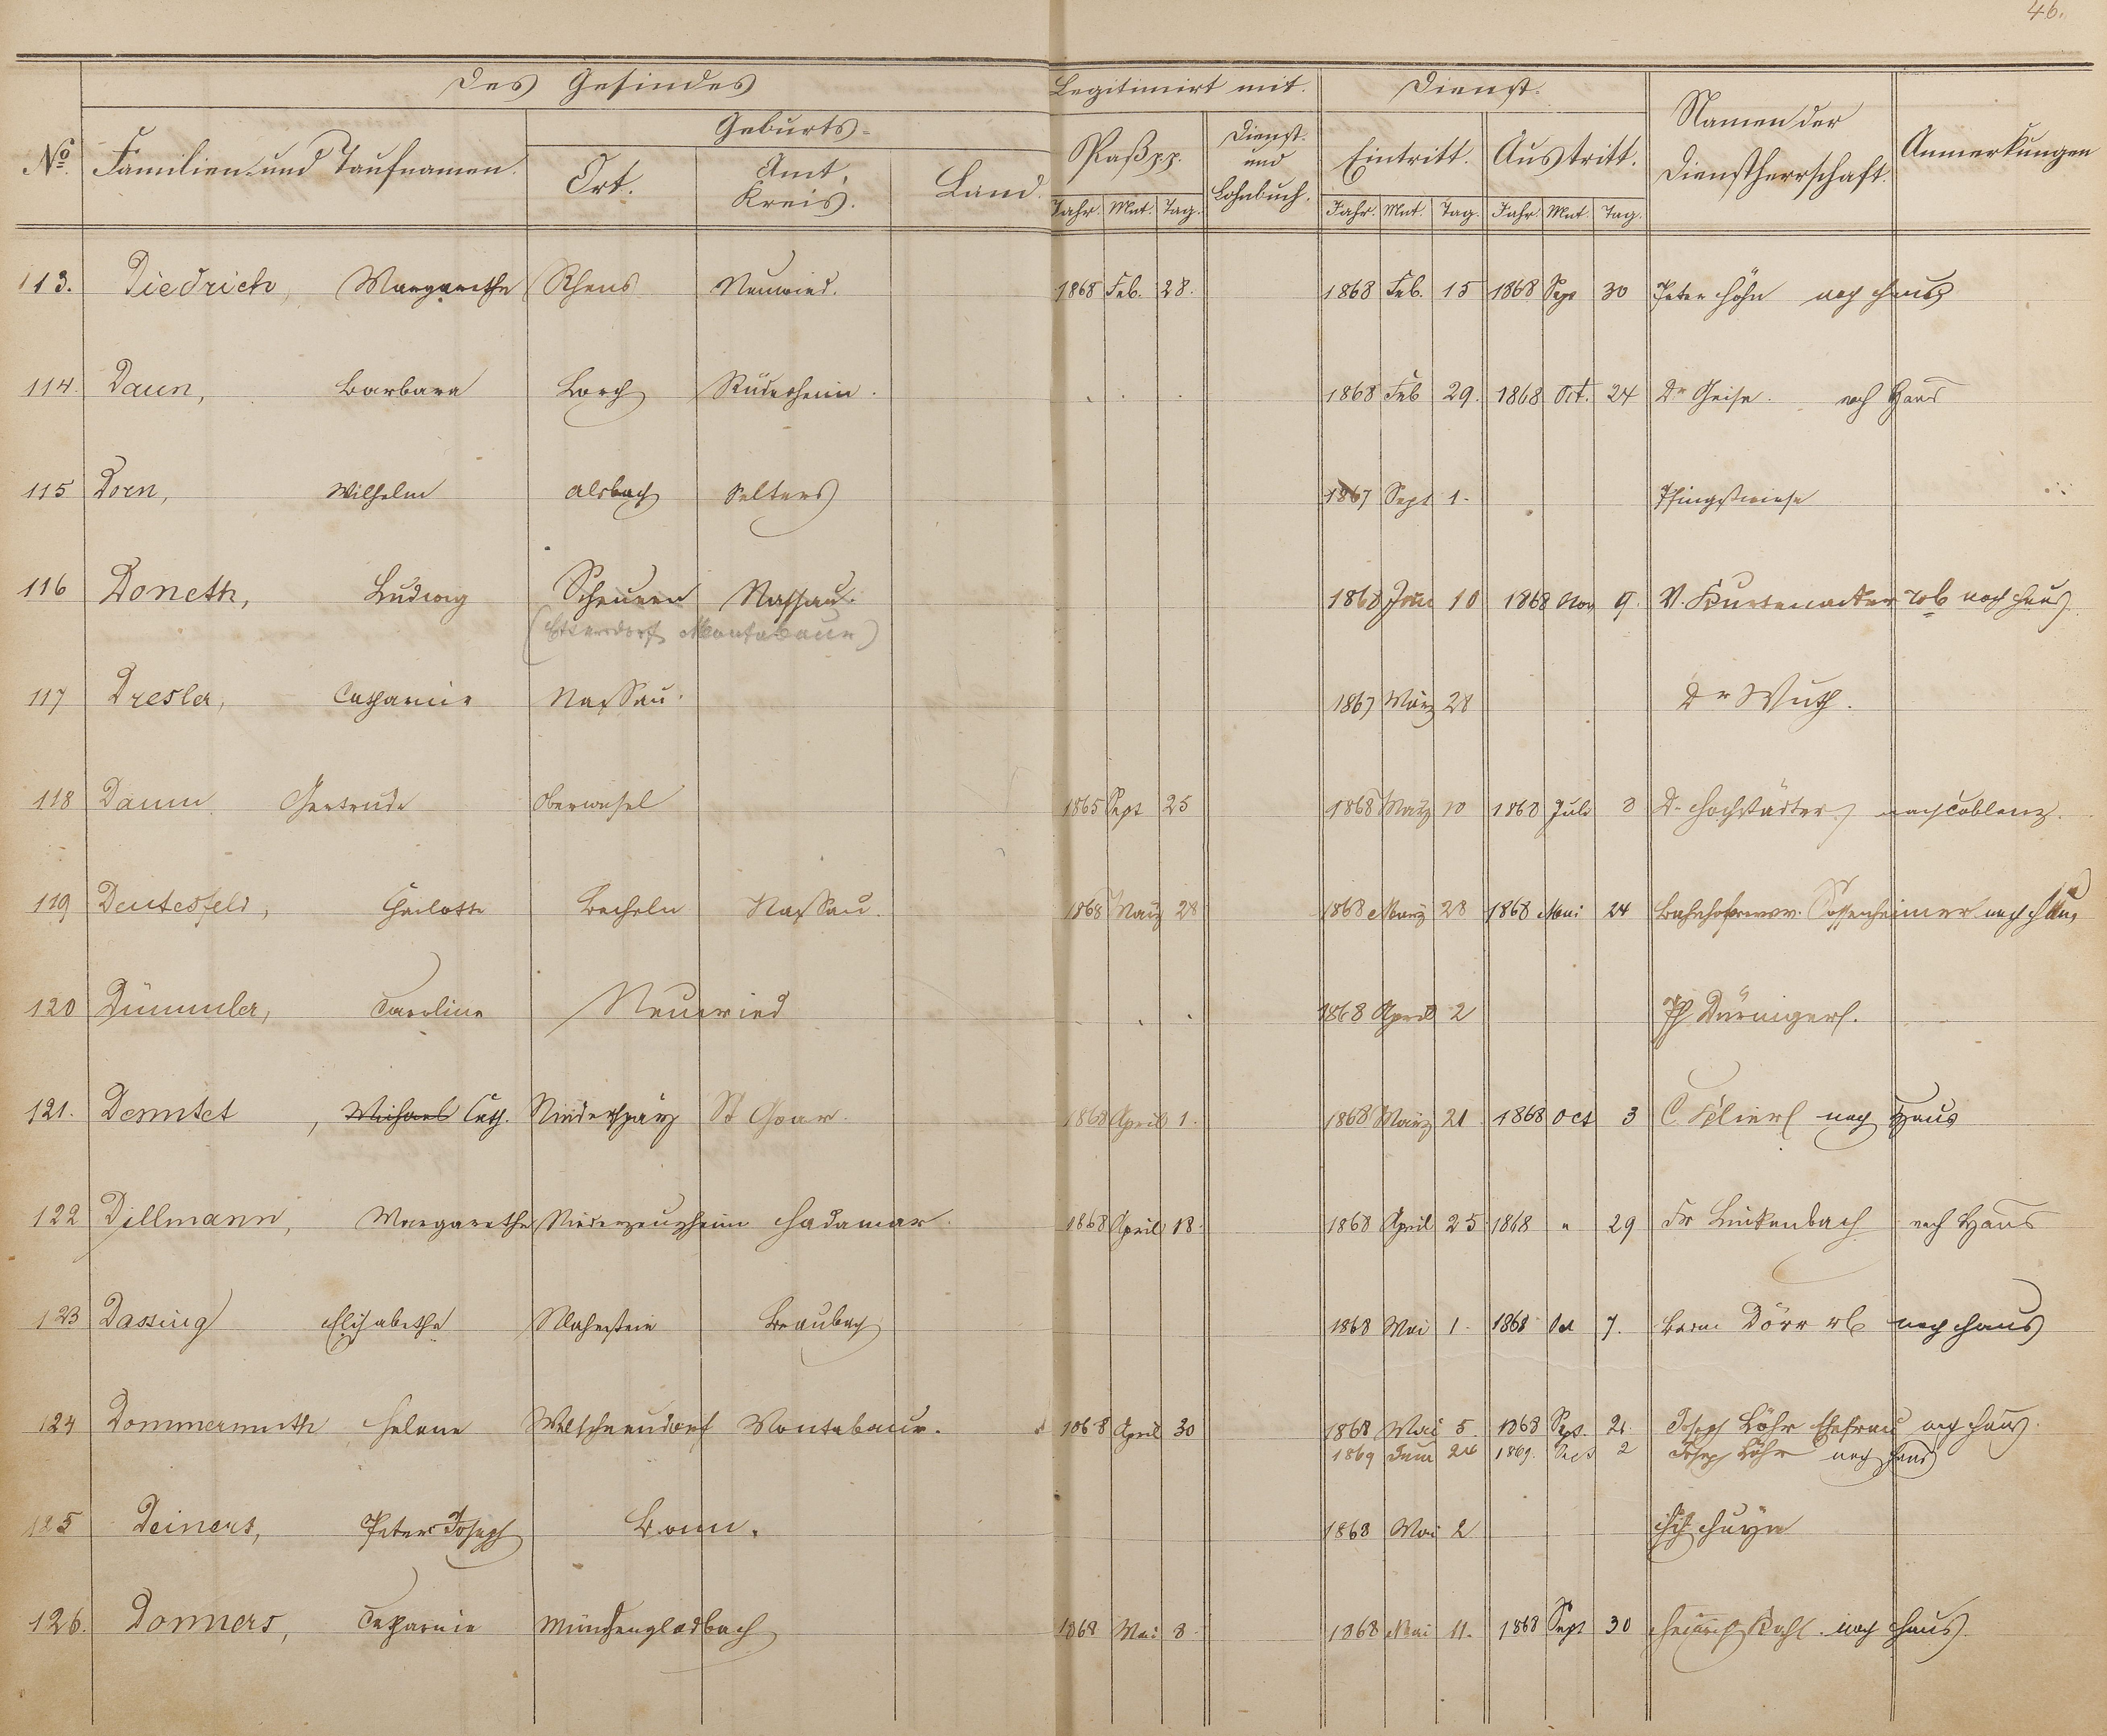 46.
Des Gesindes
Legitimirt mit.
Dienst.
Geburts-
No.
Familien- und Taufnamen.
Ort.
Amt, Kreis.
Land.
Paß pp.
Dienst- und Lohnbuch.
Eintritt.
Austritt.
Namen der Dienstherrschaft.
Anmerkungen
Jahr. Mnt. Tag.
Jahr. Mnt. Tag. Jahr. Mnt. Tag.
113. Diedrich, Margarethe Rhens Neuwied. 1868 Feb. 28. 1868 Feb. 15 1868 Sept 30 Peter Höhn nach Haus
114. Daun, Barbara Lorch Rüdesheim. 1868 Feb 29. 1868 Oct. 24 Dr Geise. nach Haus
115 Dorn, Wilhelm Alsbach Selters 1867 Sept 1. Pfingstwiese
116 Doneth, Ludwig Scheuern Nassau. 1868 Juni 10 1868 Nov 9. W. Kurtenacker nach Haus
(Ettersdorf Montabaur)
117 Dresler, Catharine Nassau. 1867 März 28 Dr Wuth.
118 Daum Gertrude Oberwesel 1865 Sept 25 1868 März 10 1868 Juli 3 Dr Hochstädter nach Coblenz.
119 Deutesfeld, Charlotte Becheln Nassau. 1868 März 28 1868 März 28 1868 Mai 24 Sossenheimer nach Haus
120 Dümmler, Caroline Neuwied 1868 April 2 Ph
121. Demtet, Michael Cath. Niederspay St Goar. 1868 April 1. 1868 März 21 1868 Oct 3 C. nach Haus
122 Dillmann, Margarethe Niederzeuzheim Hadamar. 1868 April 18. 1868 April 25 1868 " 29 Fr Linkenbach nach Haus
123 Dassing Elisabethe Braubach 1868 Mai 1. 1868 Oct 7. Dörr nach Haus
124 Dommermuth Helene Welschneudorf Montabaur. 1868 April 30 1868 Mai 5. 1868 Sept. 21. Joseph Löhr Ehefrau nach Haus.
1869 Juni 24 1869. 2 Joseph Löhr nach Haus
125 Deiners, Peter Joseph Bonn. 1868 Mai 2
126. Donners, Catharine Münchengladbach 1868 Mai 8. 1868 Mai 11. 1868 Sept 30 Heinrich Kahl. nach Haus.